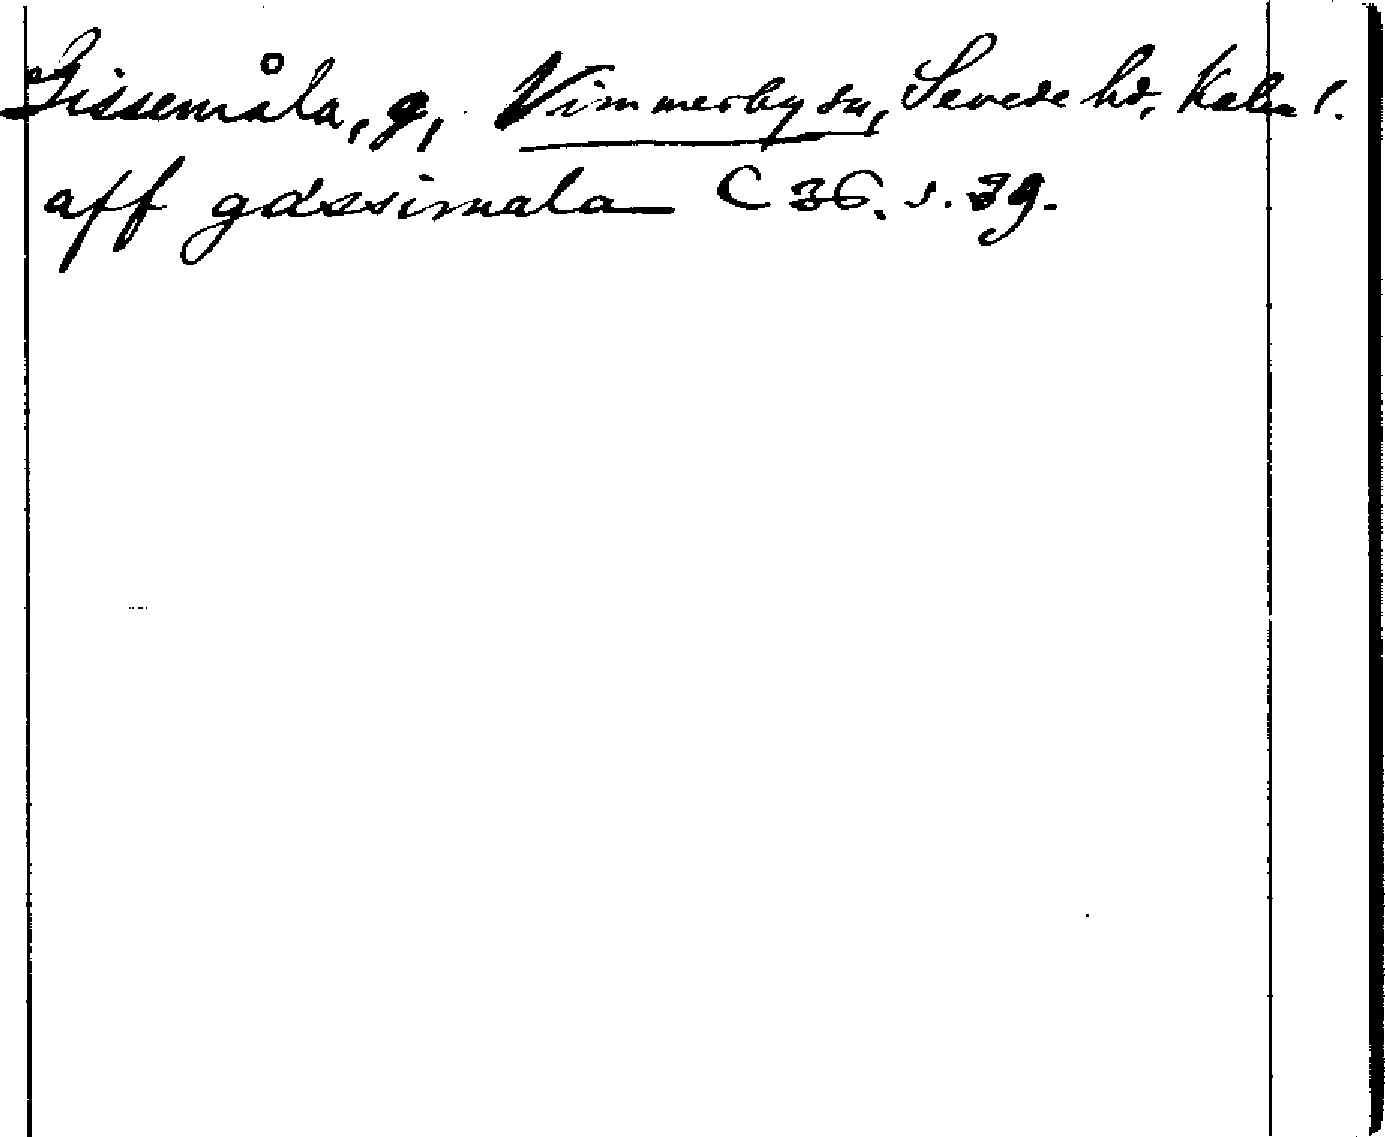 Gissemåla, g, Vimmerby sn, Sevede hd, Kalm l.
aff gdzssimala C 36. s. 39.